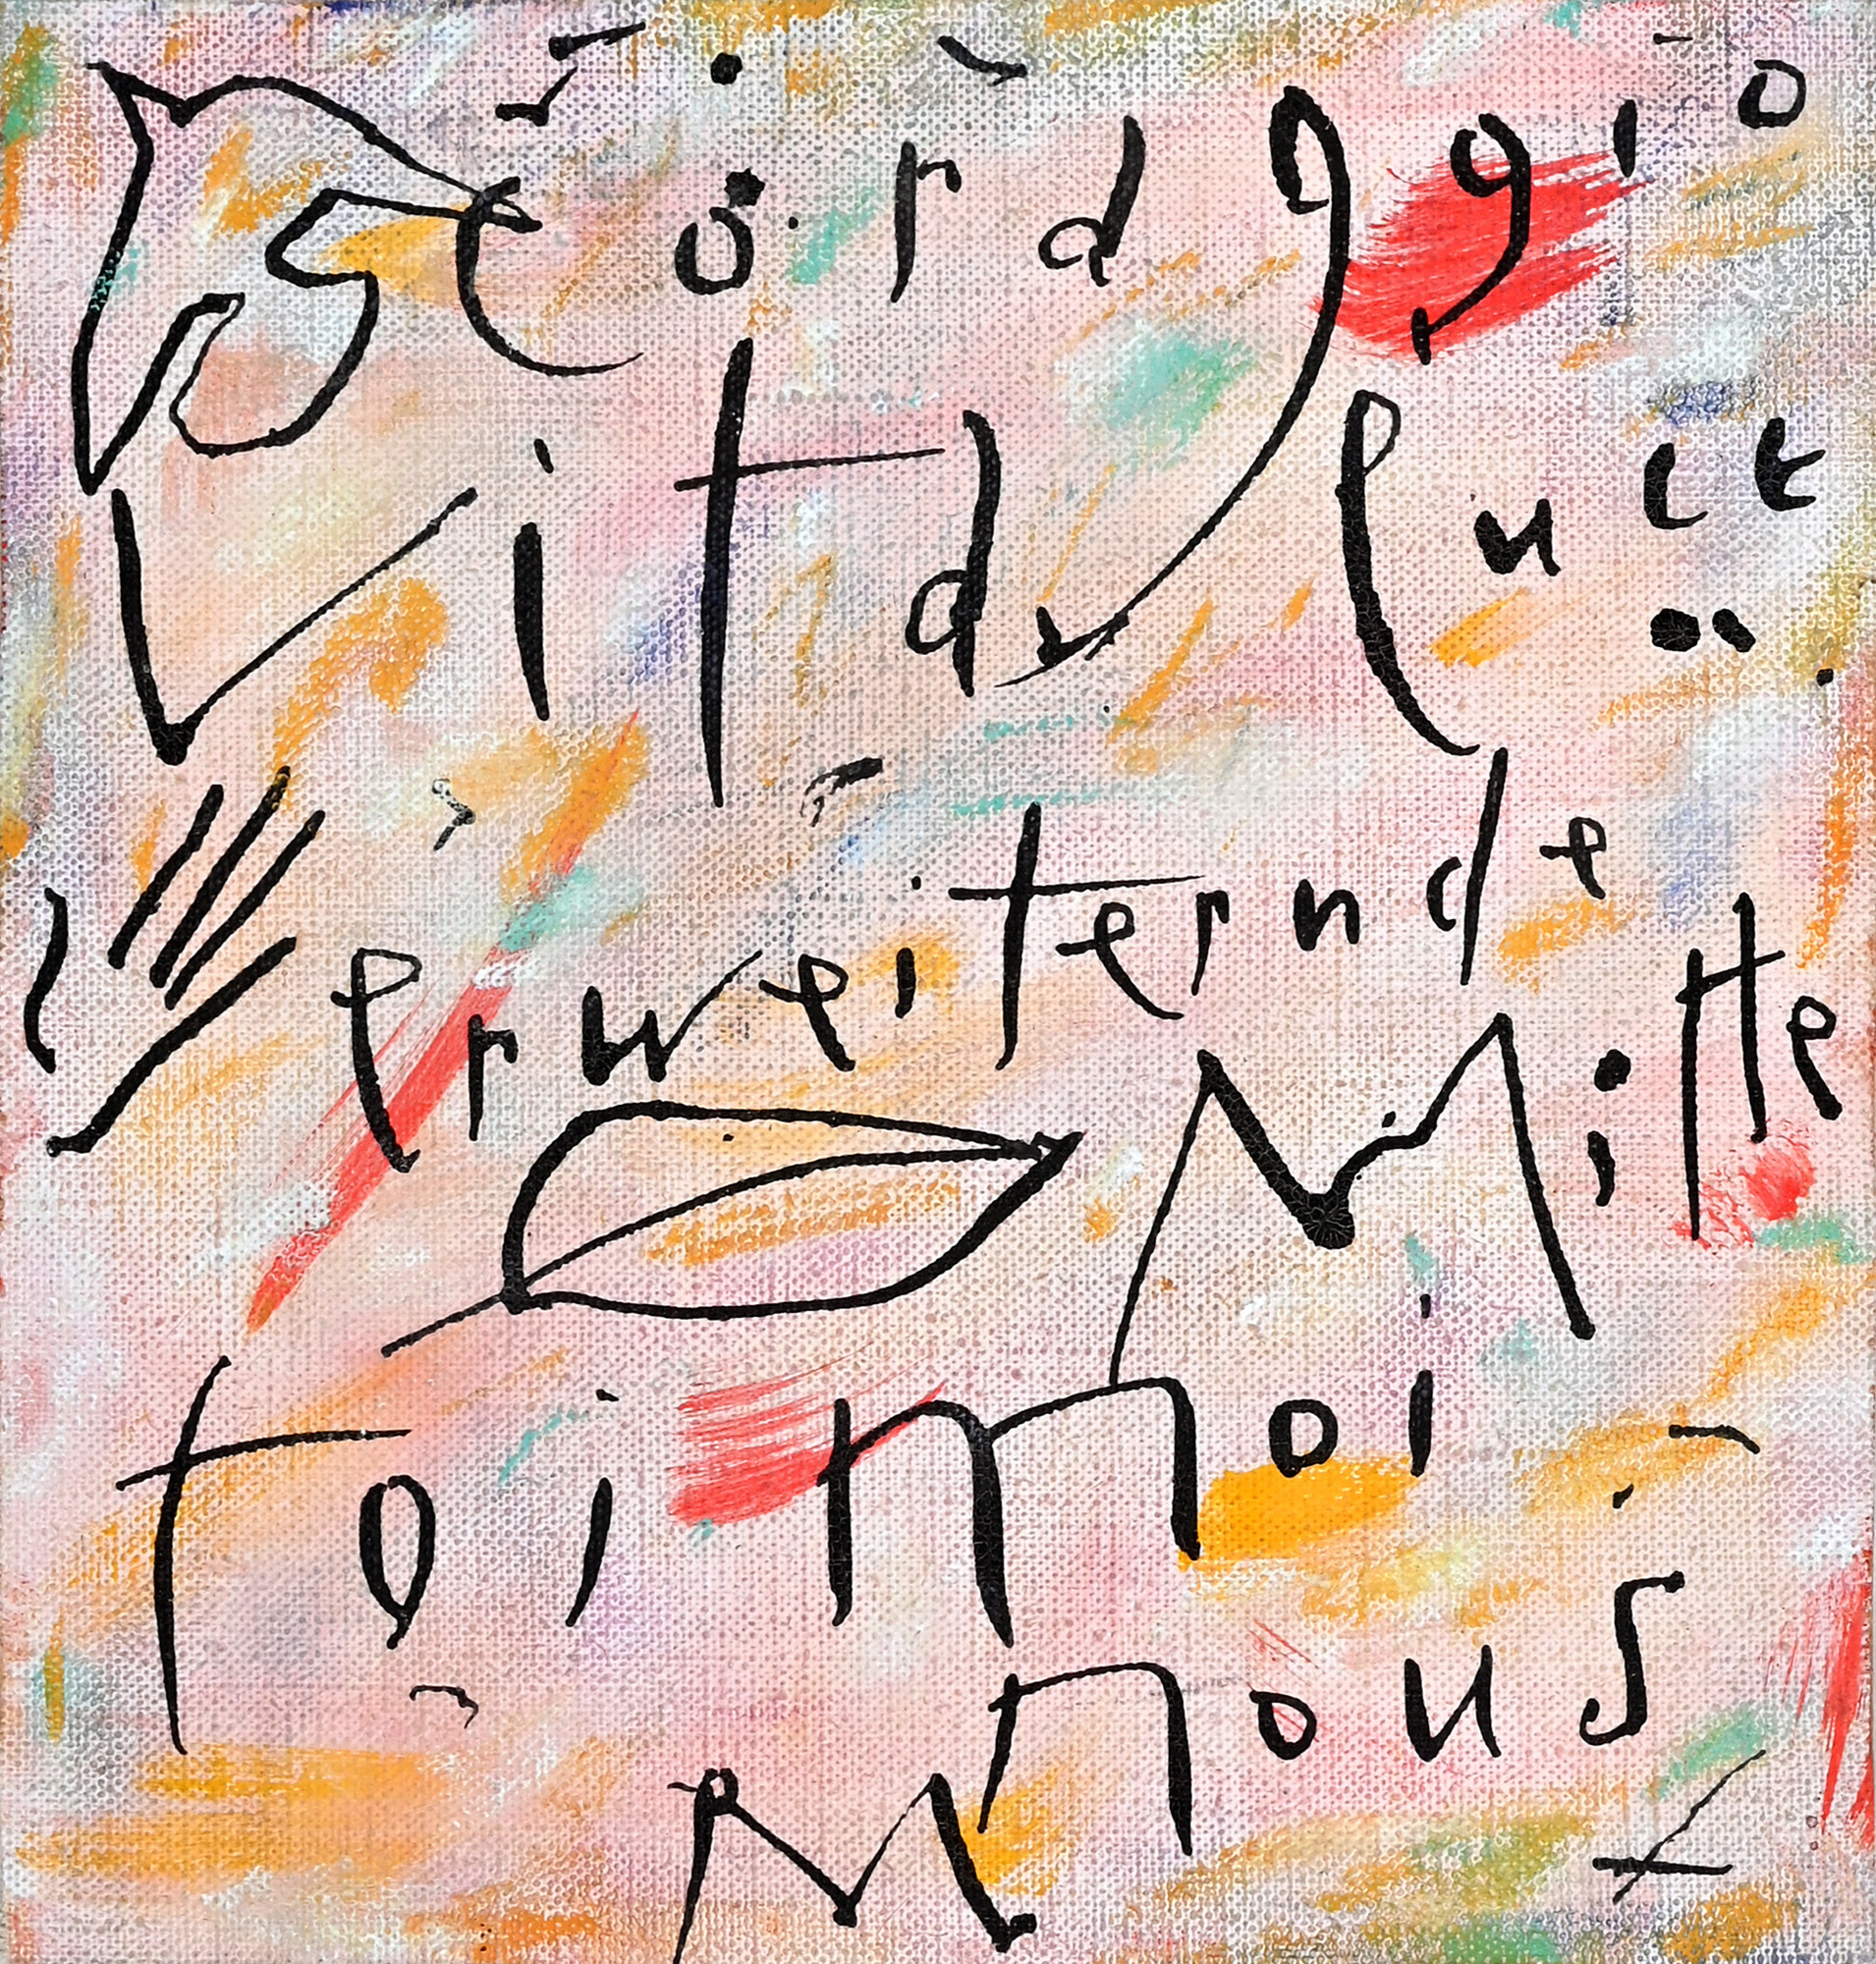 Coraggio
Vita luce
erweiternde
Mitte
toi moi
nous
M